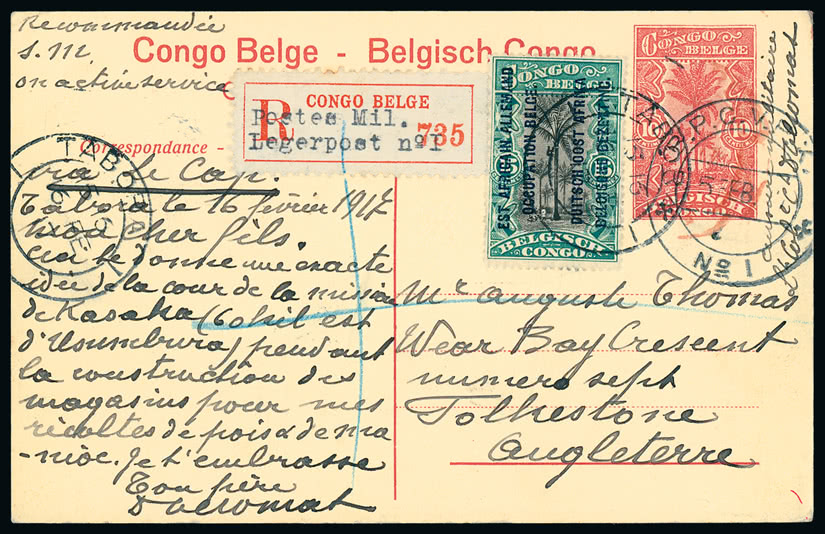 Recommandée
S.M.
on active service
Congo Belge - Belgisch Congo
Correspondance
R
CONGO BELGE
Postes Mil.
Legerpost n°I
735
EST AFRICAIN ALLEMAND
OCCUPATION BELGE
DUITSCH OOST AFRIKA
BELGISCHE BEZETTING
CONGO BELGE
BELGISCH CONGO
CONGO BELGE
10
10
BELGISCH
CONGO
TABORA
TABORA
B.P.C.V.P.
5 FEB
No 1
via le Cap.
Tabora le 16 février 1917
mon cher fils.
Ceci te donne une exacte
idée de la cour de la mission
de Kasaka (60 kil est
d'Usumbura) pendant
la construction des
magasins pour mes
récoltes de pois & de ma
-nioc. Je t'embrasse
Ton père
Mr Auguste Thomas
Wear Bay Crescent
numero sept
Folkestone
Angleterre